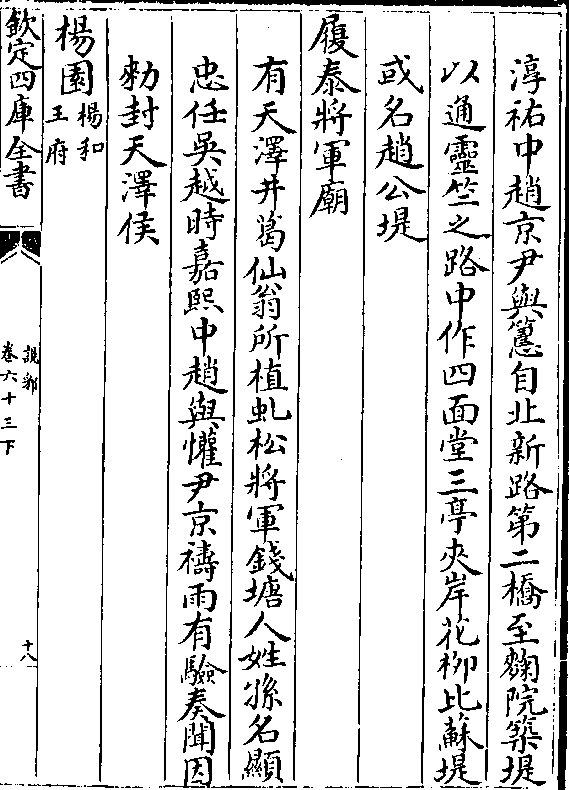 淳祐中趙京尹與𥲅自北新路第二橋至麴院築堤
以通靈竺之路中作四面堂三亭夾岸花柳比蘇堤
或名趙公堤
履泰將軍廟
有天澤井葛仙翁所植虬松將軍錢塘人姓孫名顯
忠任吳越時嘉熙中趙與懽尹京禱雨有驗奏聞因
勅封天澤侯
楊園楊和王府
欽定四庫全書
說郛
卷六十三下
十八